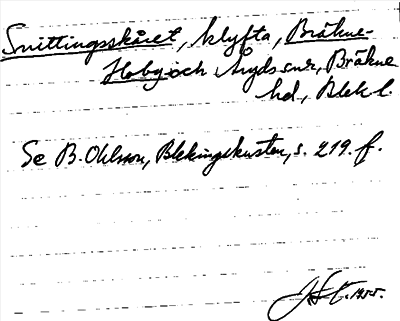 Snittingsskåret, klyfta, Bräkne-
Hoby och Åryds snr, Bräkne
hd, Blek l.
Se B. Ohlsson, Blekingekusten, s. 219. f.
1955.